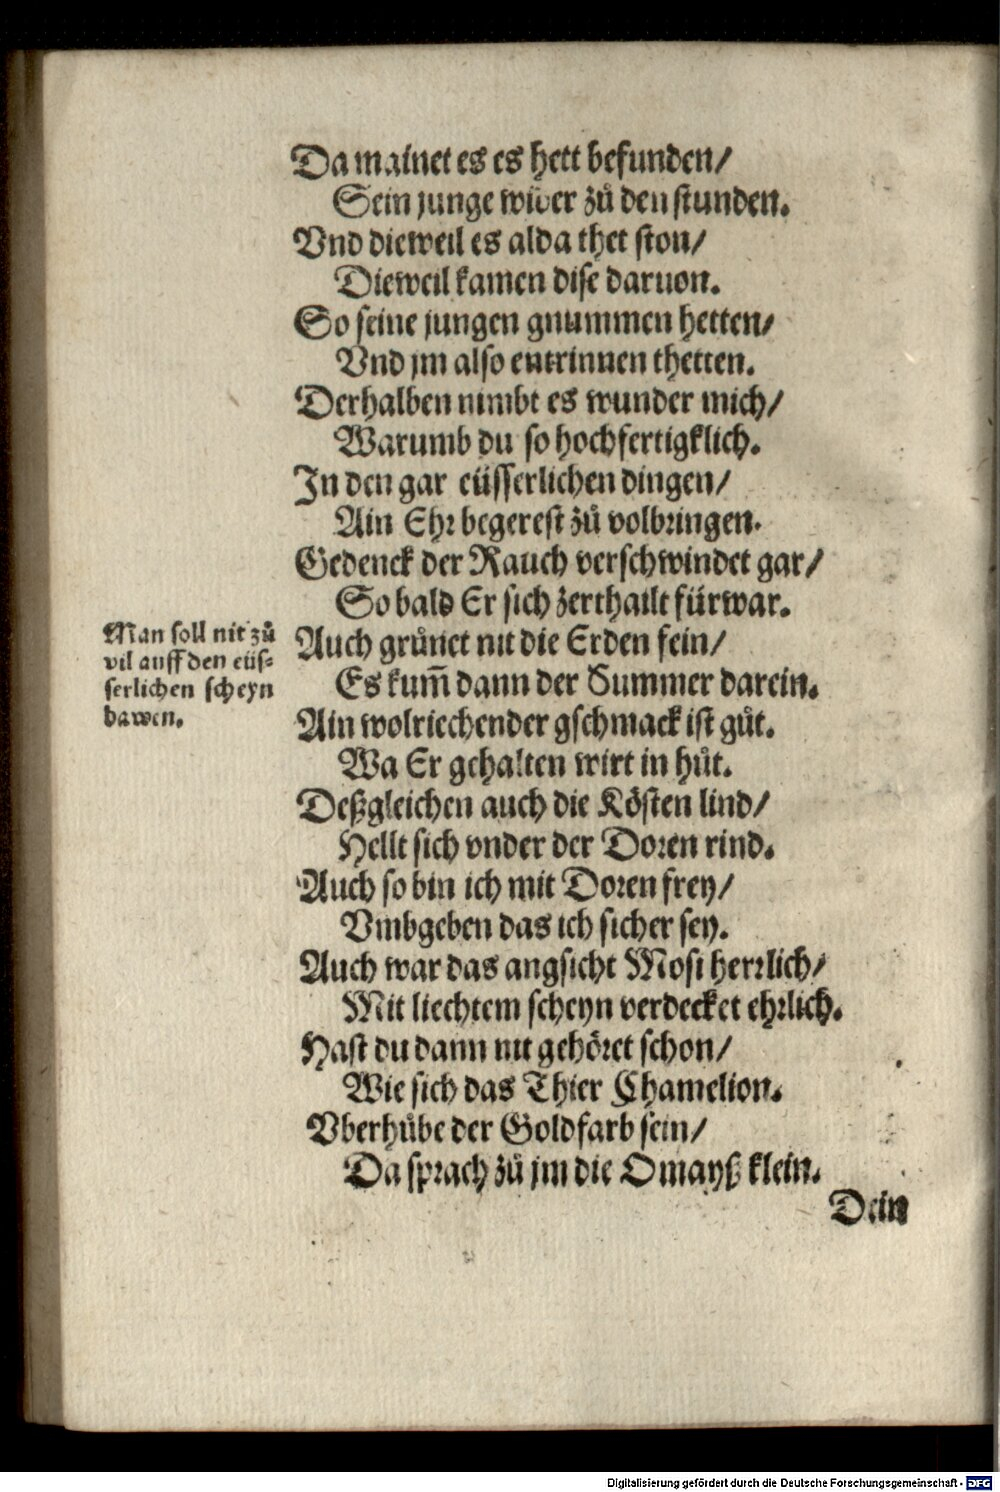 Da mainet es es hett befunden/
Sein junge wider zů den stunden.
Vnd dieweil es alda thet ston/
Dieweil kamen dise daruon.
So seine jungen gnummen hetten/
Vnd jm also entrinnen thetten.
Derhalben nimbt es wunder mich/
Warumb du so hochfertigklich.
In den gar eüsserlichen dingen/
Ain Ehr begerest zů volbringen.
Gedenck der Rauch verschwindet gar/
So bald Er sich zerthailt fürwar.
Man soll nit zů
vil auff den eüs-
serlichen scheyn
bawen.
Auch grůnet nit die Erden fein/
Es kum̃ dann der Summer darein.
Ain wolriechender gschmack ist gůt.
Wa Er gehalten wirt in hůt.
Deßgleichen auch die Kösten lind/
Hellt sich vnder der Doren rind.
Auch so bin ich mit Doren frey/
Vmbgeben das ich sicher sey.
Auch war das angsicht Mosi herrlich/
Mit liechtem scheyn verdecket ehrlich.
Hast du dann nit gehöret schon/
Wie sich das Thier Chamelion.
Vberhůbe der Goldfarb sein/
Da sprach zů jm die Omayß klein.
Dein
Digitalisierung gefördert durch die Deutsche Forschungsgemeinschaft - DFG